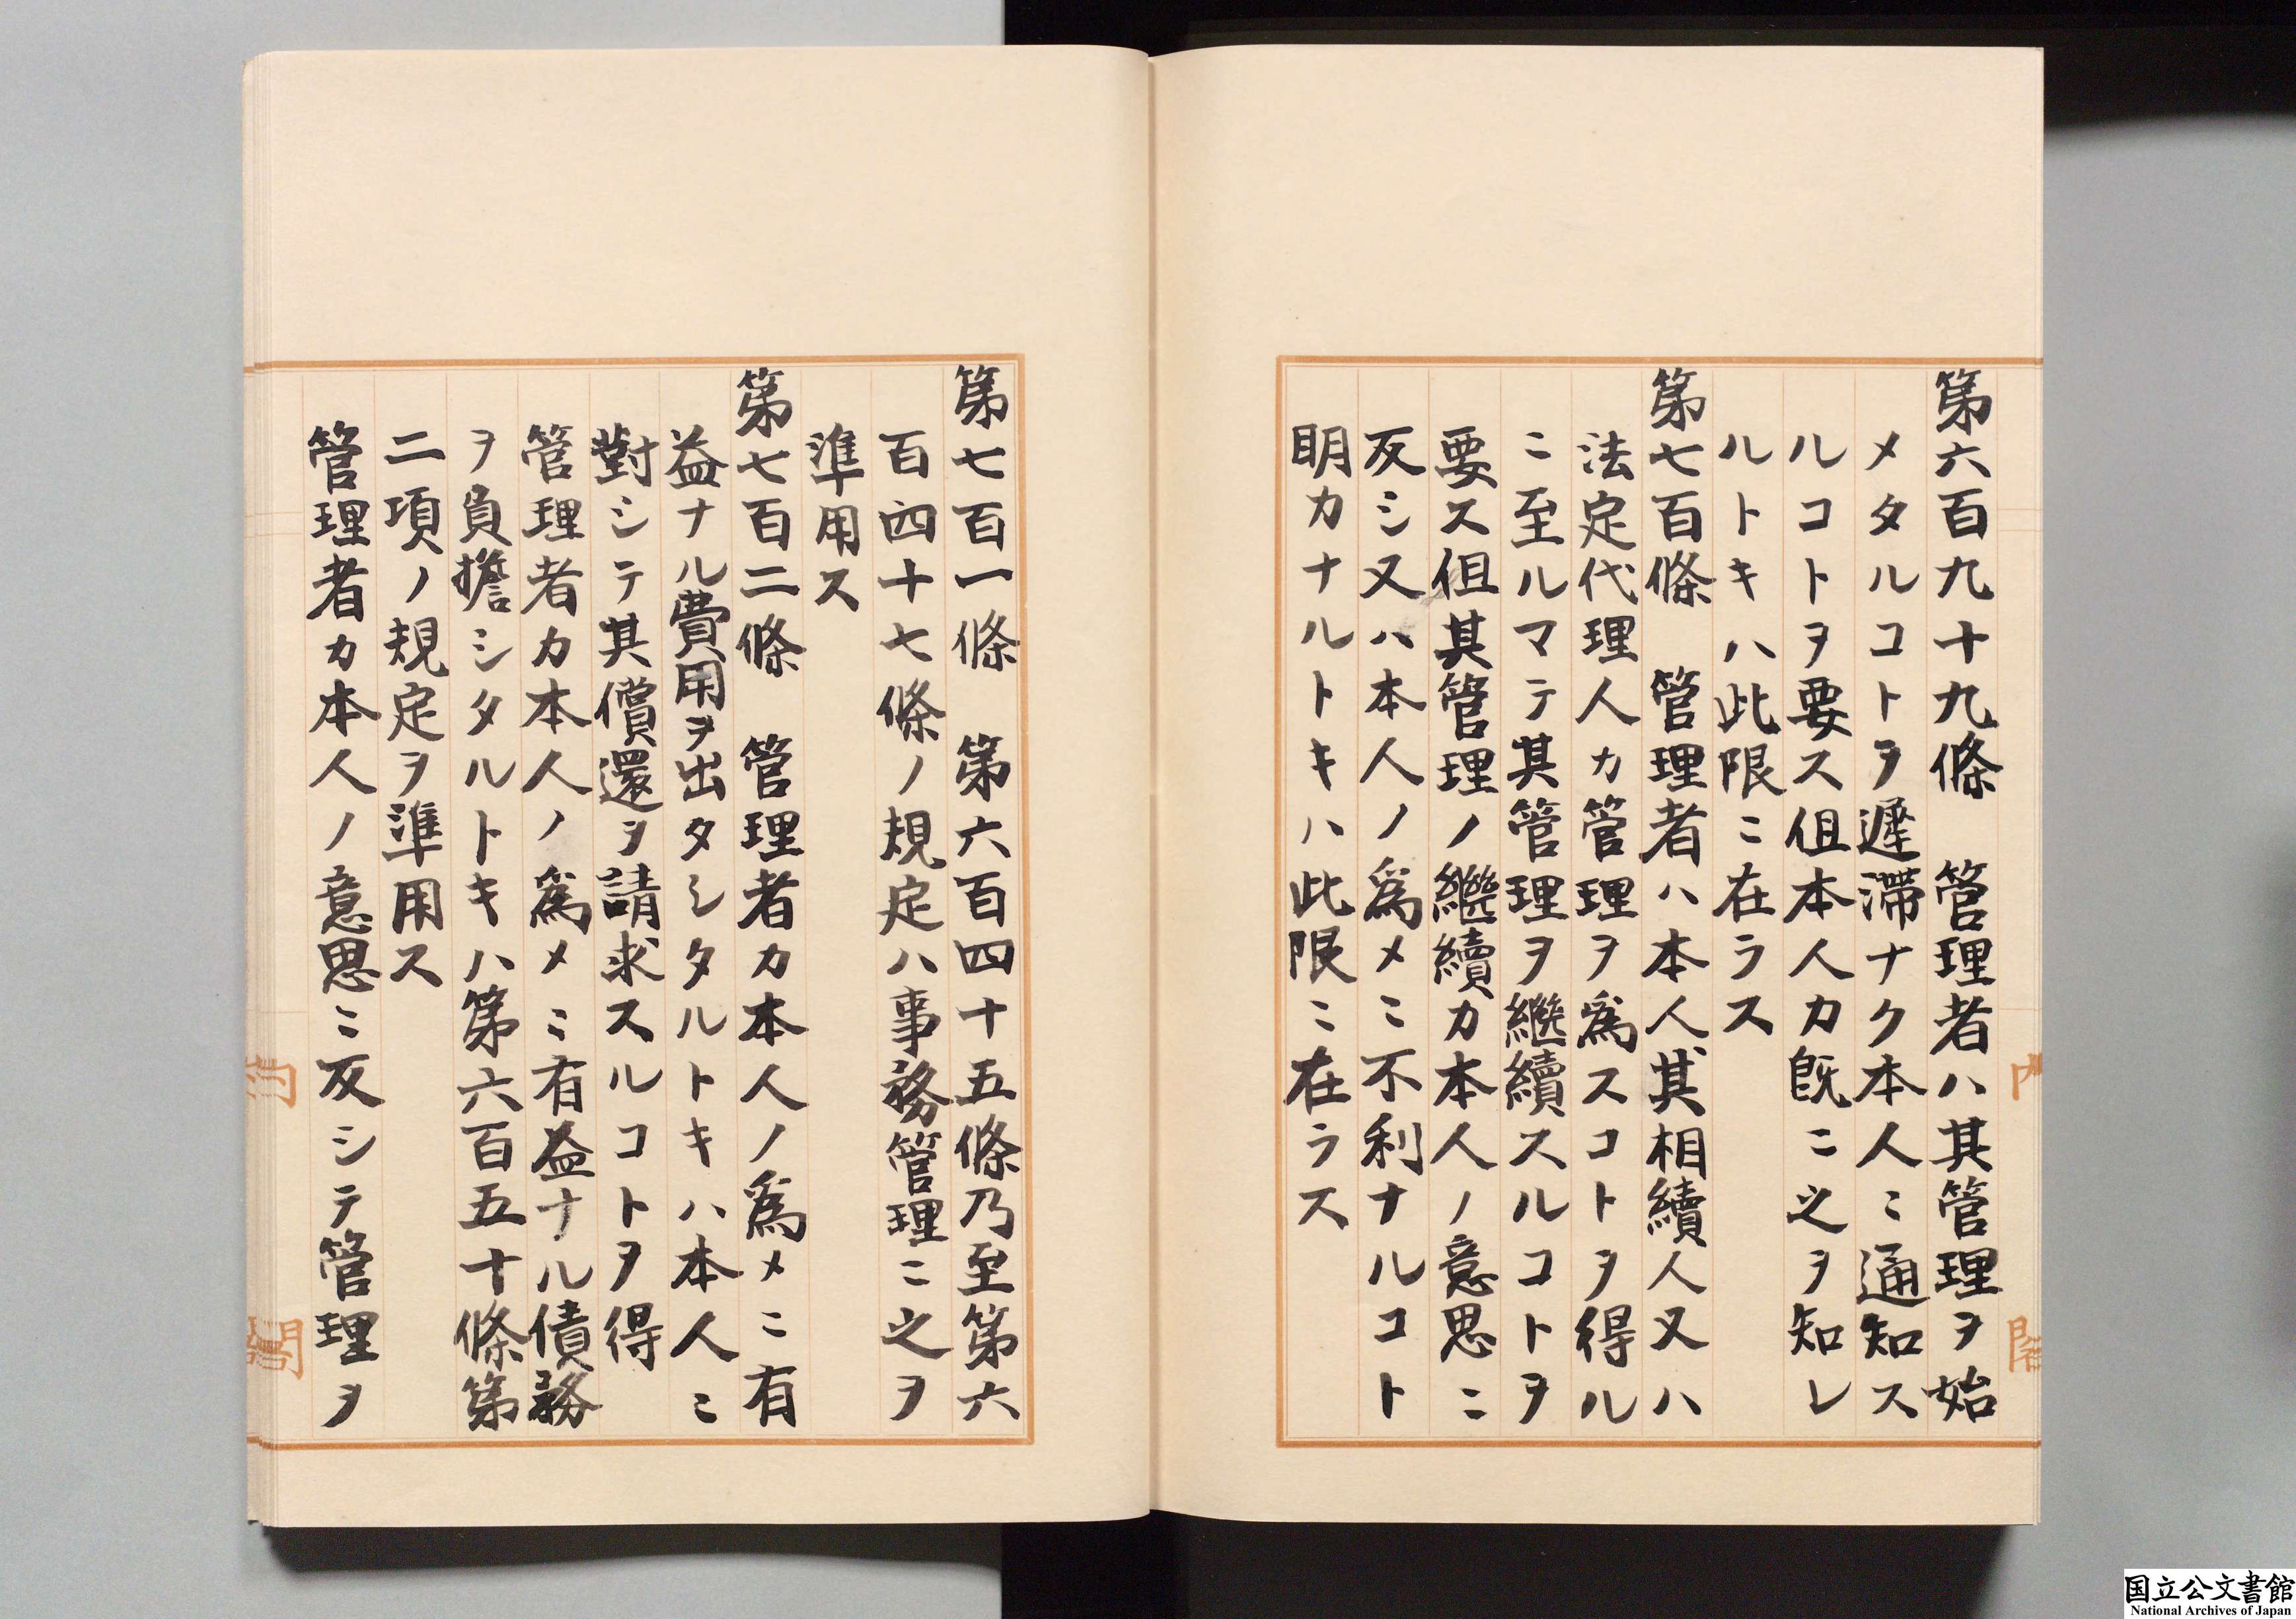 第六百九十九條　管理者ハ其管理ヲ始
メタルコトヲ遲滯ナク本人ニ通知ス
ルコトヲ要ス但本人カ既ニ之ヲ知レ
ルトキハ此限ニ在ラス
第七百條　管理者ハ本人其相續人又ハ
法定代理人カ管理ヲ爲スコトヲ得ル
ニ至ルマテ其管理ヲ繼續スルコトヲ
要ス但其管理ノ繼續カ本人ノ意思ニ
反シ又ハ本人ノ爲メニ不利ナルコト
明カナルトキハ此限ニ在ラス
第七百一條　第六百四十五條乃至第六
百四十七條ノ規定ハ事務管理ニ之ヲ
準用ス
第七百二條　管理者カ本人ノ爲メニ有
益ナル費用ヲ出タシタルトキハ本人ニ
對シテ其償還ヲ請求スルコトヲ得
管理者カ本人ノ爲メニ有益ナル債務
ヲ負擔シタルトキハ第六百五十條第
二項ノ規定ヲ準用ス
管理者カ本人ノ意思ニ反シテ管理ヲ
国立公文書館
National Archives of Japan